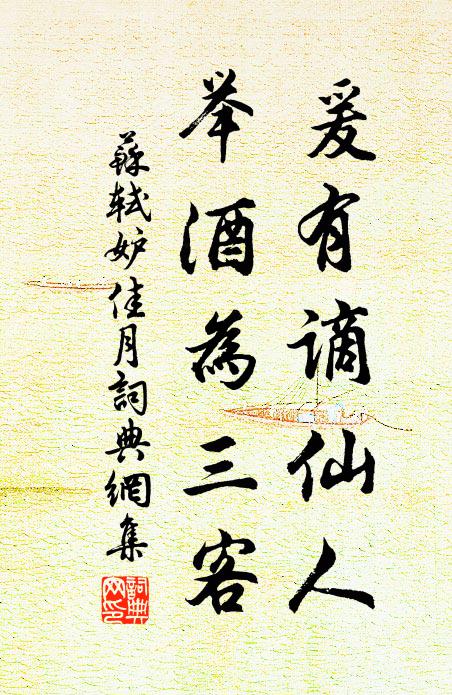 爰有謫仙人
举酒為三客
蘇軾妒佳月詞典網集
詞典
网印